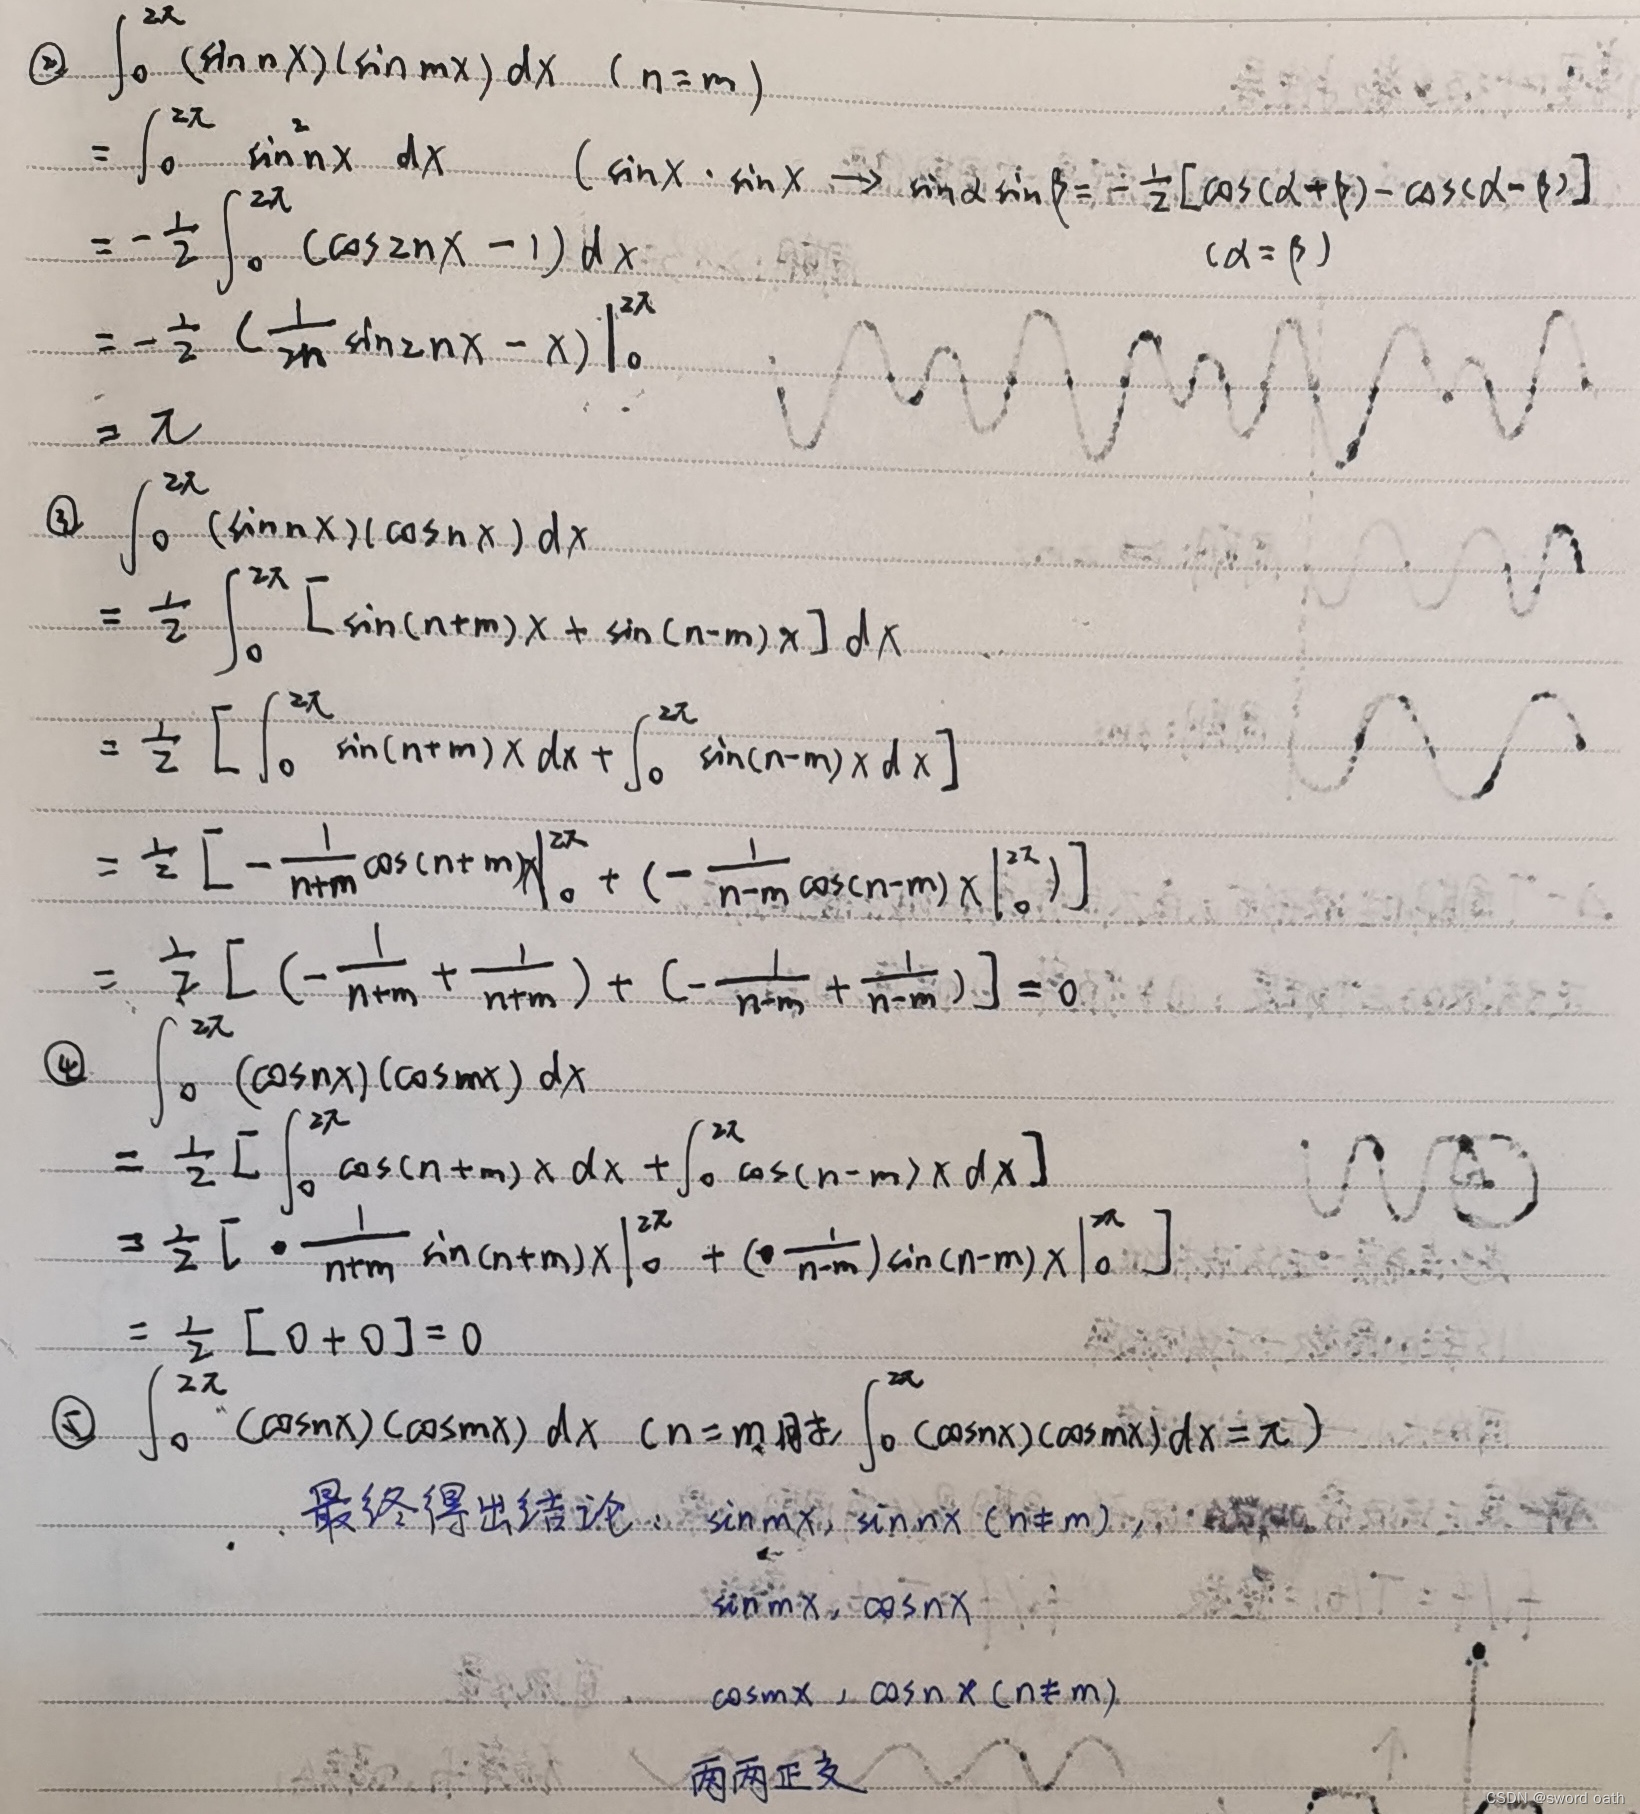 ② ∫₀^{2π} (sin nx)(sin mx) dx (n=m)
= ∫₀^{2π} sin²nx dx (sinx·sinx → sinα sinβ = -1/2[cos(α+β)-cos(α-β)]
= -1/2 ∫₀^{2π} (cos2nx - 1) dx (α=β)
= -1/2 (1/2n sin2nx - x)|₀^{2π}
= π
③ ∫₀^{2π} (sin nx)(cosnx) dx
= 1/2 ∫₀^{2π} [sin(n+m)x + sin(n-m)x] dx
= 1/2 [∫₀^{2π} sin(n+m)x dx + ∫₀^{2π} sin(n-m)x dx]
= 1/2 [-1/n+m cos(n+m)x|₀^{2π} + (-1/n-m cos(n-m)x|₀^{2π})]
= 1/2 [(-1/n+m + 1/n+m) + (-1/n-m + 1/n-m)] = 0
④ ∫₀^{2π} (cosnx)(cosmx) dx
= 1/2 [∫₀^{2π} cos(n+m)x dx + ∫₀^{2π} cos(n-m)x dx]
= 1/2 [1/n+m sin(n+m)x|₀^{2π} + (1/n-m) sin(n-m)x|₀^{2π}]
= 1/2 [0+0] = 0
⑤ ∫₀^{2π} (cosnx)(cosmx) dx (n=m时, ∫₀^{2π} (cosnx)(cosmx) dx = π)
最终得出结论: sinmx, sinnx (n≠m),
sinmx, cosnx
cosmx, cosnx (n≠m)
两两正交
CSDN @sword oath